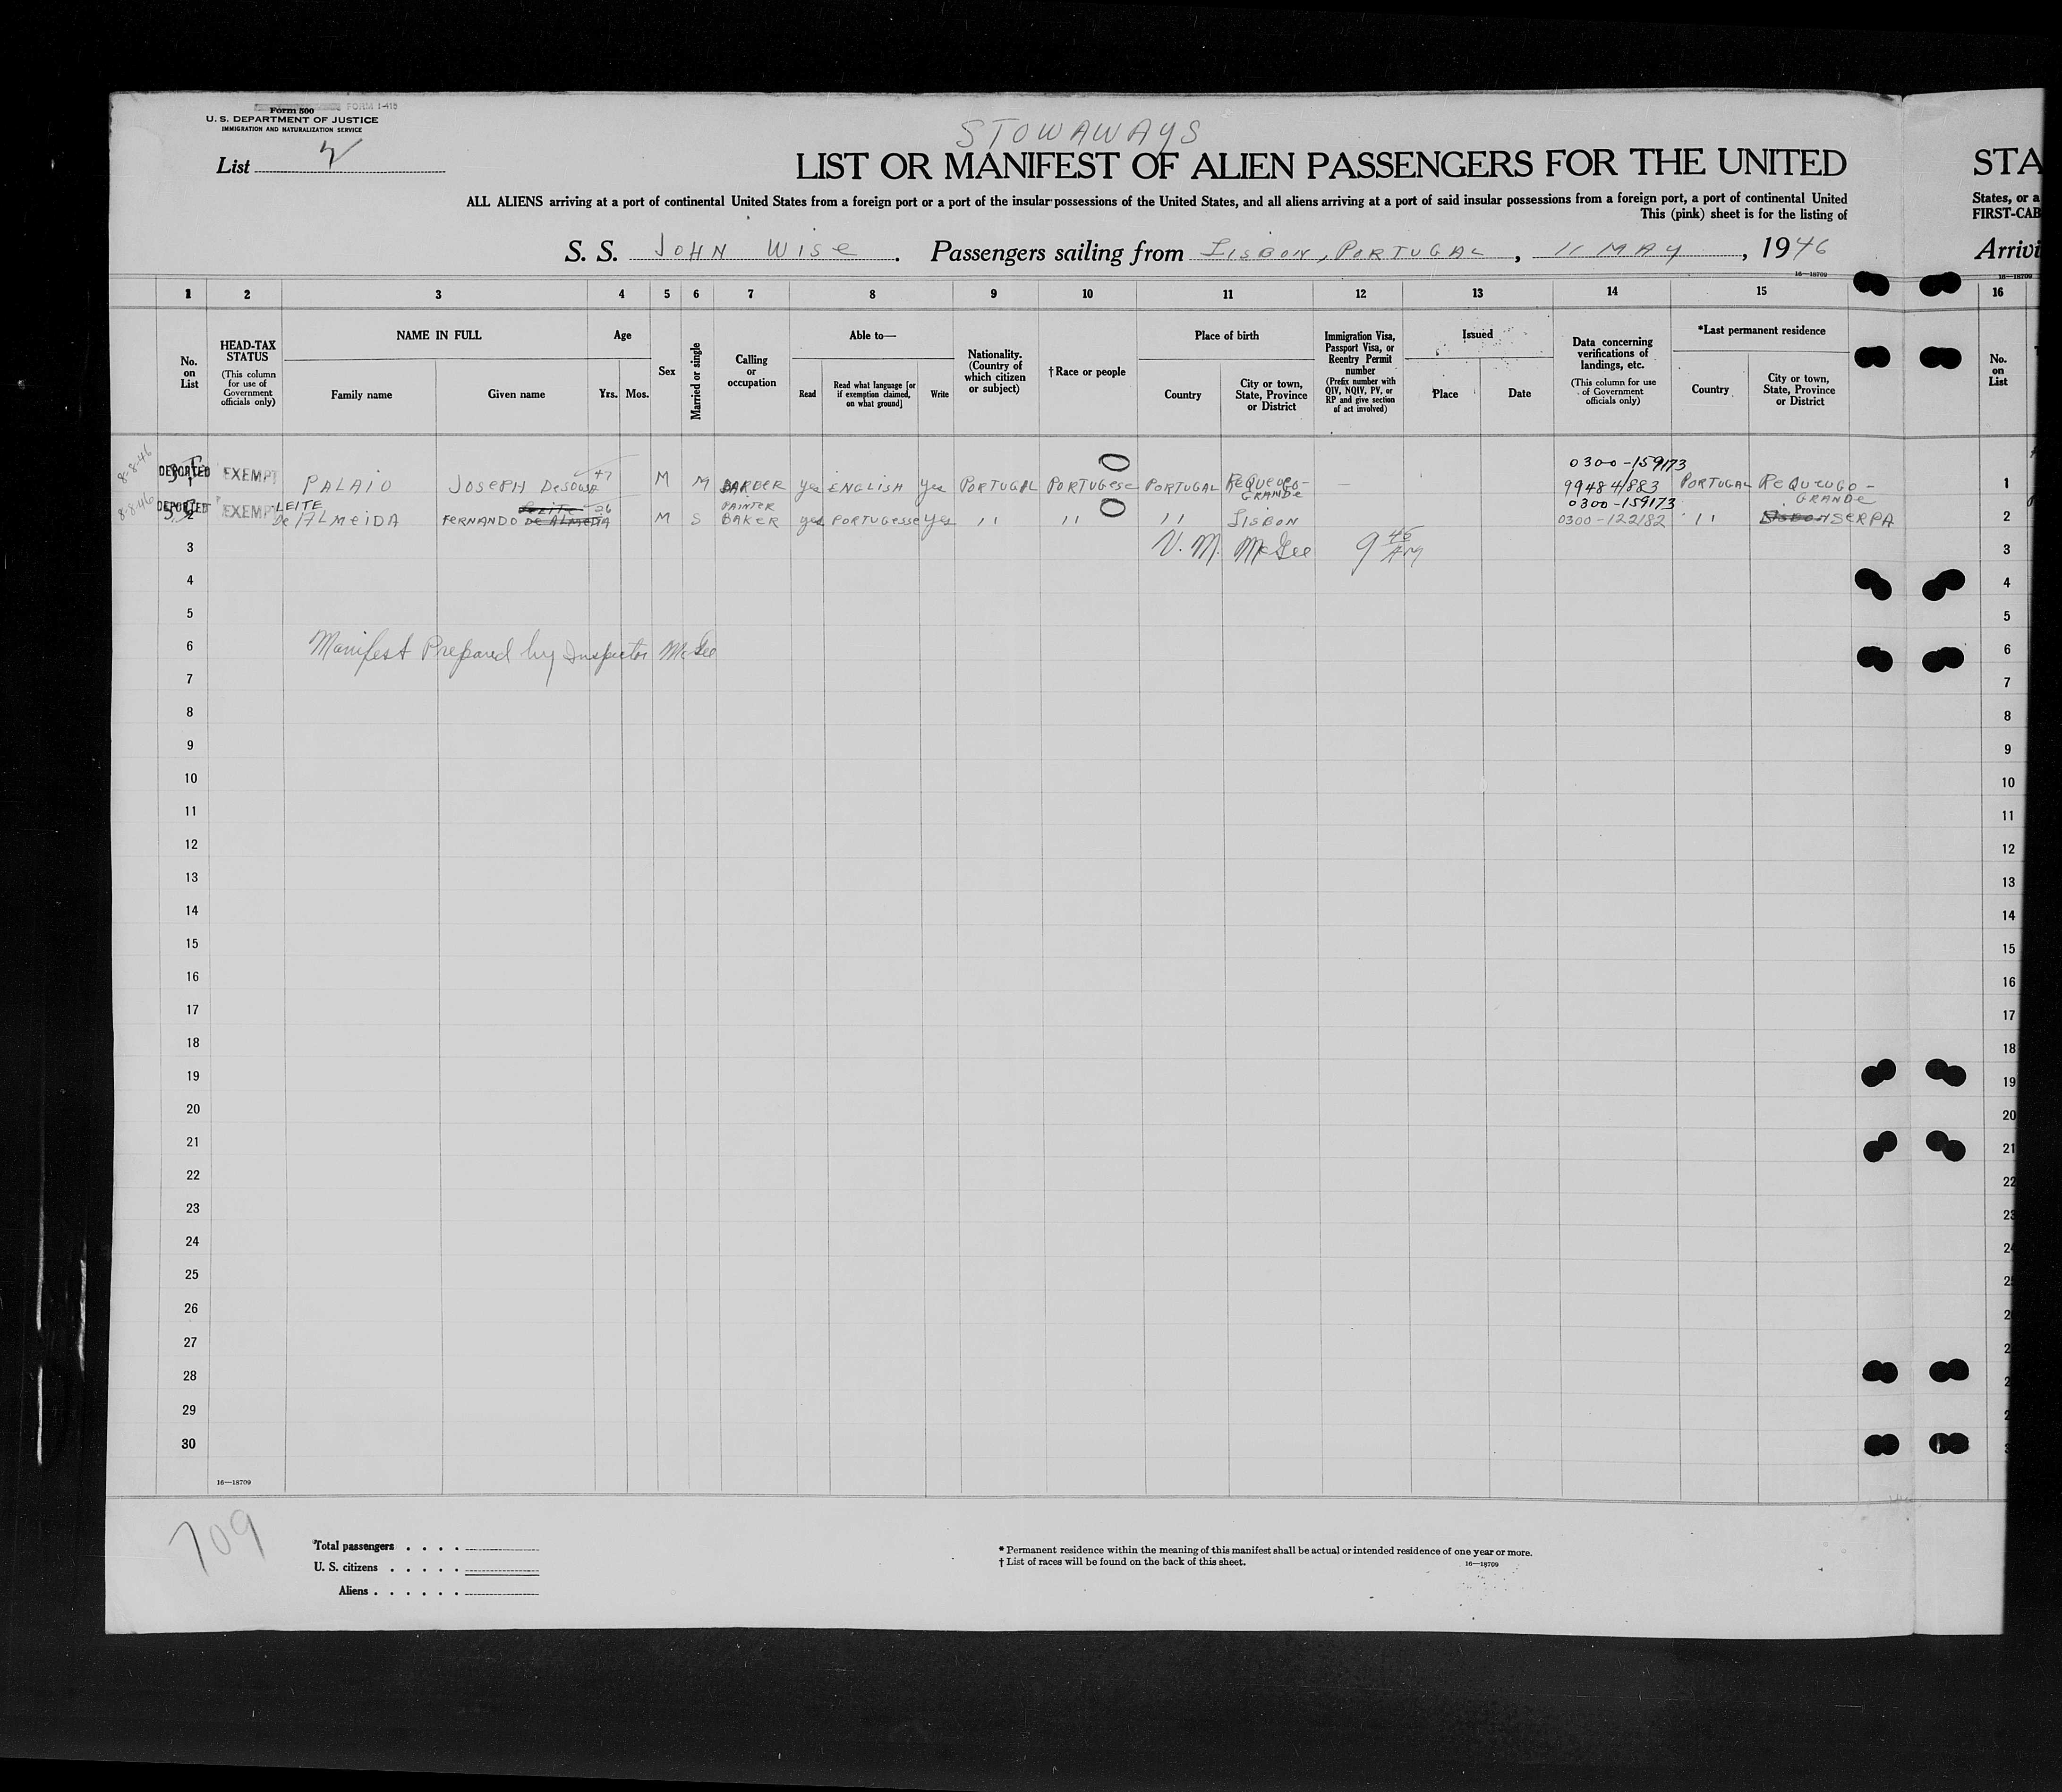 Form 500 FORM I-415
U. S. DEPARTMENT OF JUSTICE
IMMIGRATION AND NATURALIZATION SERVICE
STOWAWAYS
List 2
LIST OR MANIFEST OF ALIEN PASSENGERS FOR THE UNITED STA
ALL ALIENS arriving at a port of continental United States from a foreign port or a port of the insular possessions of the United States, and all aliens arriving at a port of said insular possessions from a foreign port, a port of continental United States, or a
This (pink) sheet is for the listing of FIRST-CAB
S. S. JOHN WISE. Passengers sailing from LISBON, PORTUGAL, 11 MAY, 1946 Arrivi
16—18709 16—18709
1 2 3 4 5 6 7 8 9 10 11 12 13 14 15 16
No. on List
HEAD-TAX STATUS
(This column for use of Government officials only)
NAME IN FULL
Family name
Given name
Age
Yrs. Mos.
Sex
Married or single
Calling or occupation
Able to—
Read
Read what language [or if exemption claimed, on what ground]
Write
Nationality. (Country of which citizen or subject)
†Race or people
Place of birth
Country
City or town, State, Province or District
Immigration Visa, Passport Visa, or Reentry Permit number
(Prefix number with QIV, NQIV, PV, or RP and give section of act involved)
Issued
Place
Date
Data concerning verifications of landings, etc.
(This column for use of Government officials only)
*Last permanent residence
Country
City or town, State, Province or District
No. on List
8-8-46 DEPORTED 1 EXEMPT PALAIO JOSEPH DeSOUSA 47 M M BARBER yes ENGLISH yes PORTUGAL PORTUGESE PORTUGAL GRANDE — 0300-159173 99484/883 PORTUGAL GRANDE 1
8-8-46 DEPORTED 2 EXEMPT LEITE de ALMEIDA FERNANDO LEITE DE ALMEDIA 26 M S PAINTER BAKER yes PORTUGESSE yes '' '' '' LISBON 0300-159173 0300-122182 '' LISBON SERPA 2
3 V. M. McGee 9 45 AM 3
4 4
5 5
6 Manifest Prepared by Inspector McGee 6
7 7
8 8
9 9
10 10
11 11
12 12
13 13
14 14
15 15
16 16
17 17
18 18
19 19
20 20
21 21
22 22
23 23
24 24
25 25
26 2
27 2
28 2
29 2
30 3
16—18709
709
Total passengers . . . .
U. S. citizens . . . . .
Aliens . . . . . .
* Permanent residence within the meaning of this manifest shall be actual or intended residence of one year or more.
† List of races will be found on the back of this sheet. 16—18709